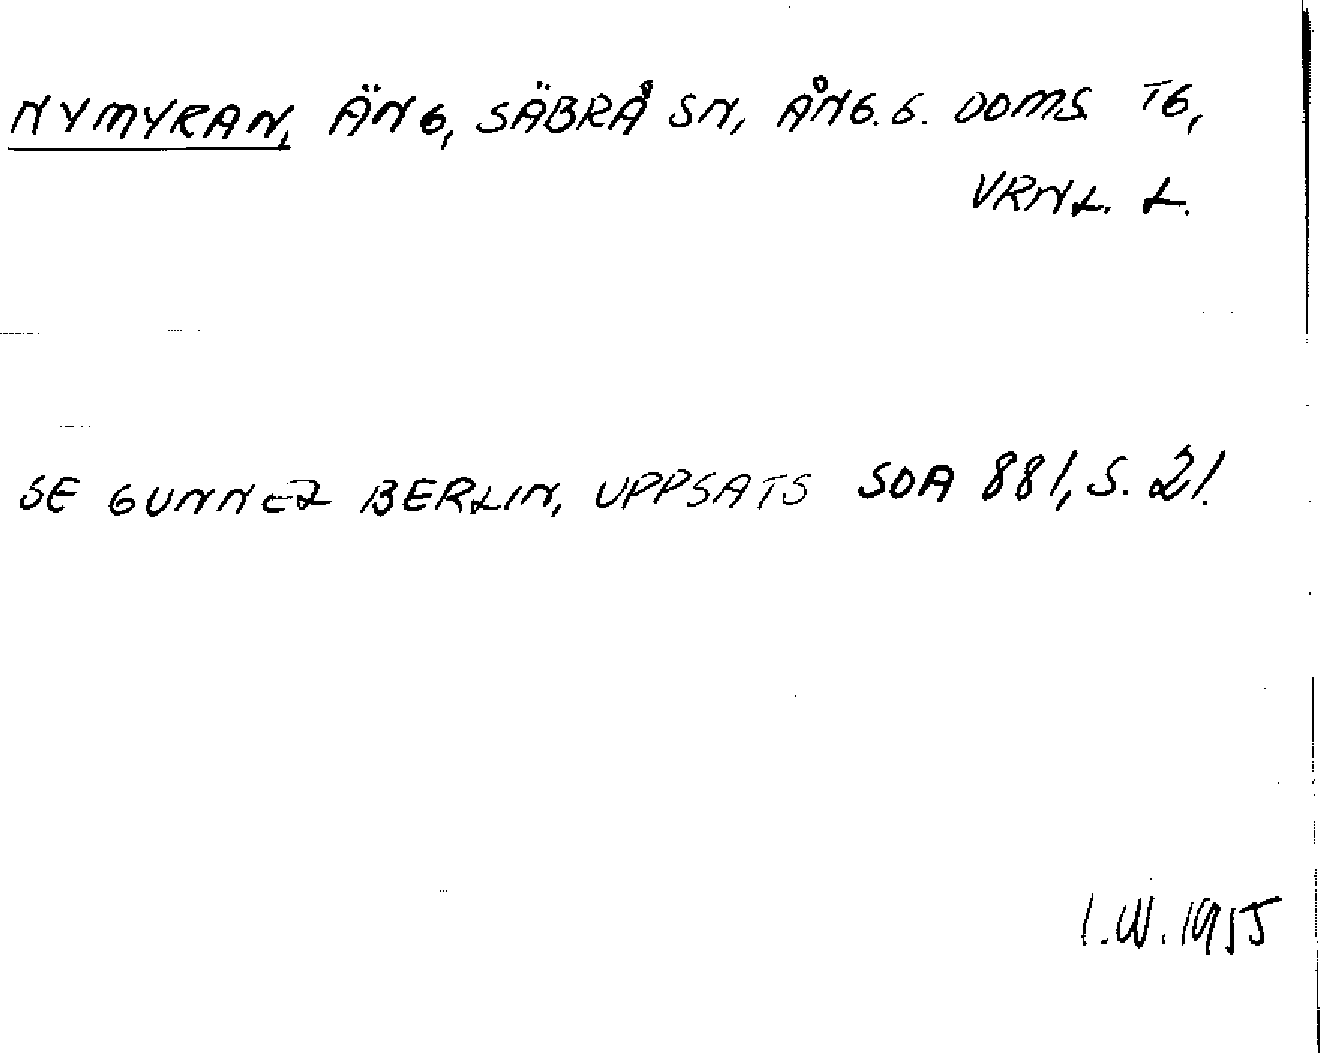 NYMYRAN, ÄNG, SÄBRÅ SN, ÅNG. S. DOMS. TG,
VRNL. L.
SE GUNNEL BERLIN, UPPSATS SOA 881, S. 21.
I.W. 1955